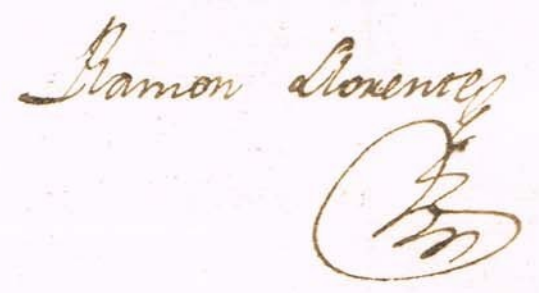 Ramon Llorente